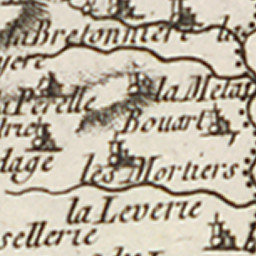 la Bretonniere le
yere
la Metai
Perelle
Bouart
drie
dage
les Mortiers
la Leverie
sellerie